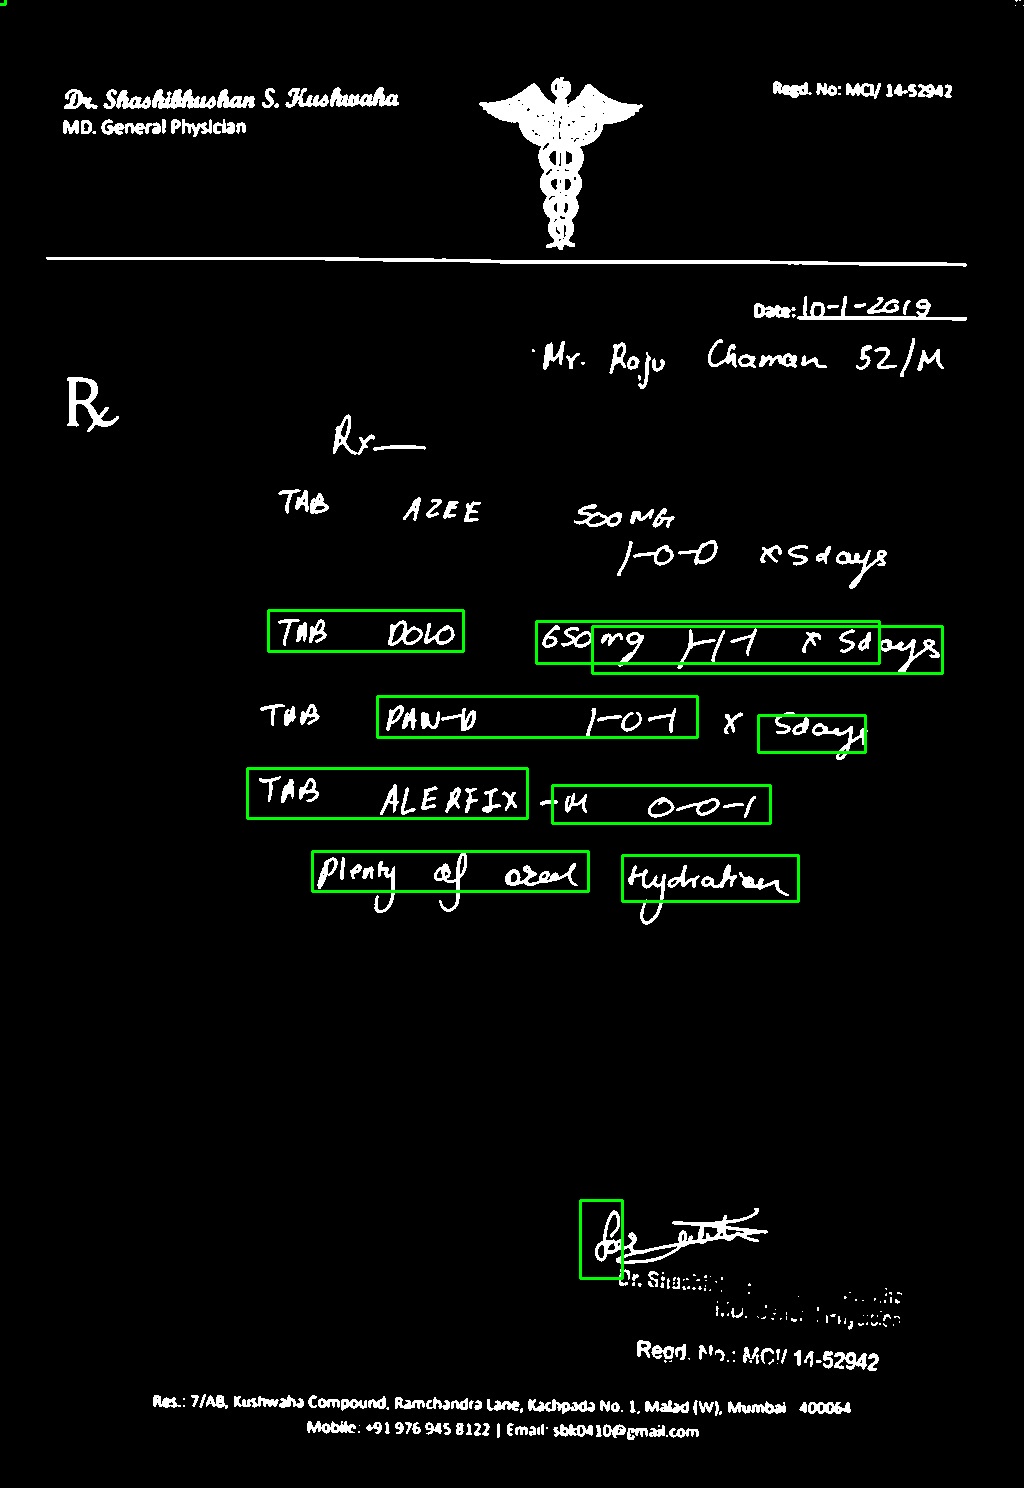 Dr. Shashibhushan S. Kushwaha
MD. General Physician
Regd. No: MCI/ 14-52942
Date: 10-1-2019
Mr. Raju Chaman 52/M
Rx
Rx
TAB AZEE 500MG
1-0-0 x 5days
TAB DOLO 650mg 1-1-1 x 5days
TAB PAN-D 1-0-1 x 5days
TAB ALERFIX-M 0-0-1
Plenty of oral Hydration
Dr.
MD.
Regd. No.: MCI/ 14-52942
Res.: 7/AB, Kushwaha Compound, Ramchandra Lane, Kachpada No. 1, Malad (W), Mumbai 400064
Mobile: +91 976 945 8122 | Email: sbk0410@gmail.com